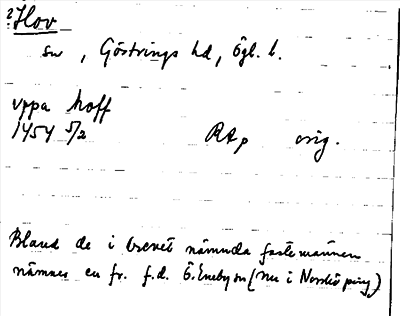 ? Hov
sn, Göstrings hd, Ögl. l.
uppa hoff
1454 5/2 RAp orig.
Bland de i brevet nämnda fastemännen
nämnes en fr. f.d. Ö. Eneby sn (nu i Norrköping)